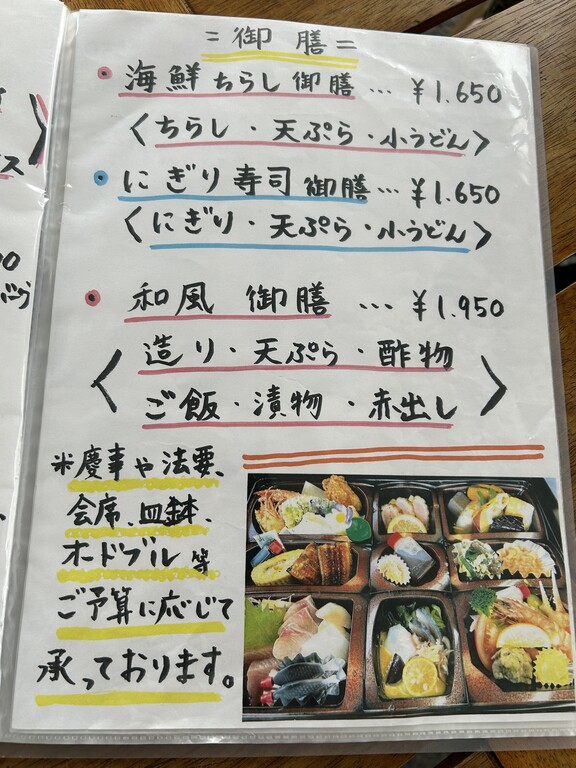 =御膳=
・海鮮ちらし御膳…¥1.650
〈ちらし・天ぷら・小うどん〉
・にぎり寿司御膳…¥1.650
〈にぎり・天ぷら・小うどん〉
・和風御膳…¥1.950
〈造り・天ぷら・酢物
ご飯・漬物・赤出し〉
※慶事や法要、
会席、皿鉢、
オードブル等
ご予算に応じて
承っております。